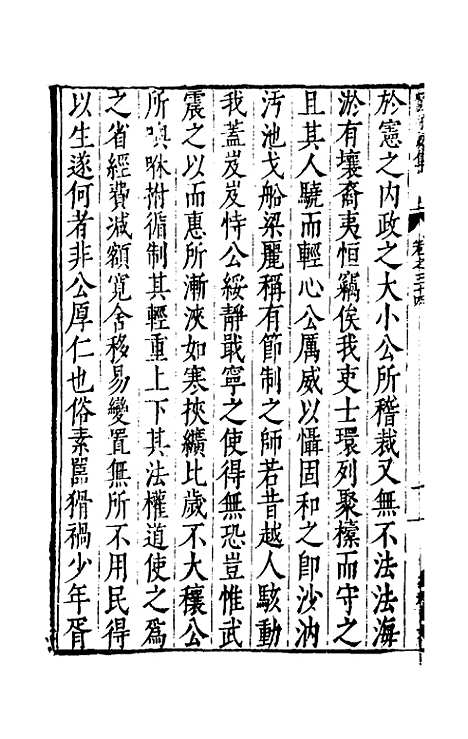 於憲之內政之大小公所稽裁又無不法法海
淤有壤裔夷恒竊俟我吏士環列聚㯠而守之
且其人驍而輕心公厲威以懾固和之卽沙汭
汚池戈船梁麗稱有節制之師若昔越人駭動
我蓋岌岌恃公綏靜戢寧之使得無恐豈惟武
震之以而惠所漸浹如寒挾纊比歲不大穰公
所嘆咻拊循制其輕重上下其法權道使之爲
之省經費減額寬舍移易變置無所不用民得
以生遂何者非公厚仁也俗素嚚猾禍少年胥
卷之三十四